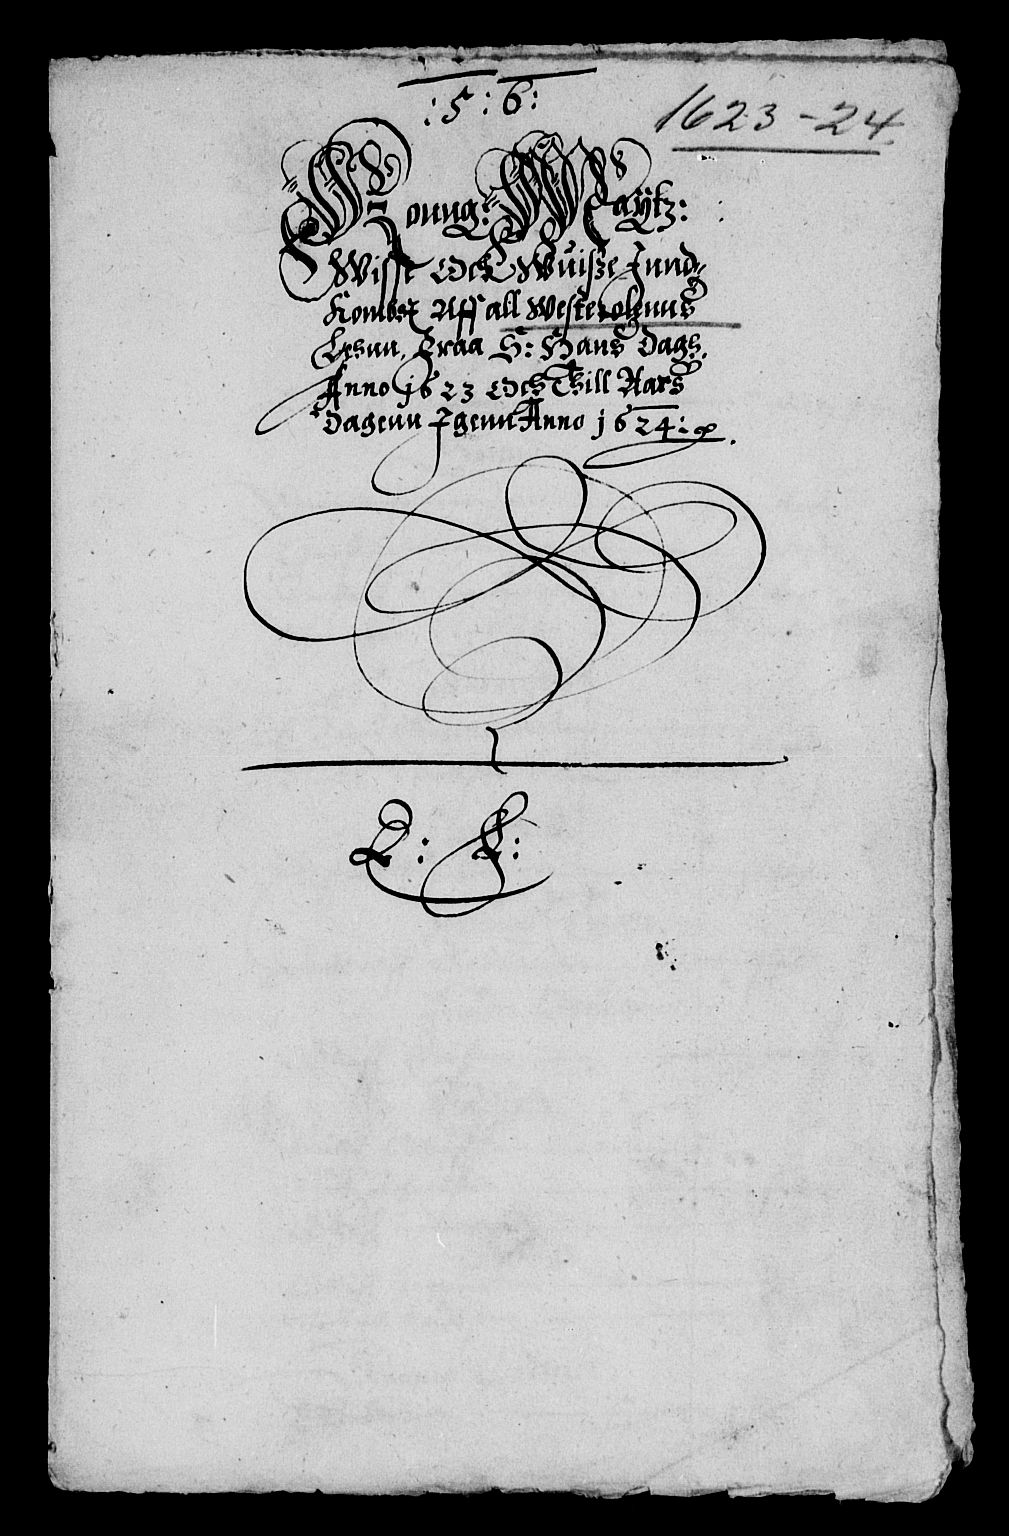 :5:6:
1623-24.
Konng: Maytz:
Wisse Och Wuisze Innd-
Kombst Aff all Westerolenns
Lehnn, Fraa S: Hans Dagh,
Anno 1623 Och Thill Aars
Dagenn Igenn Anno 1624:
L: K: